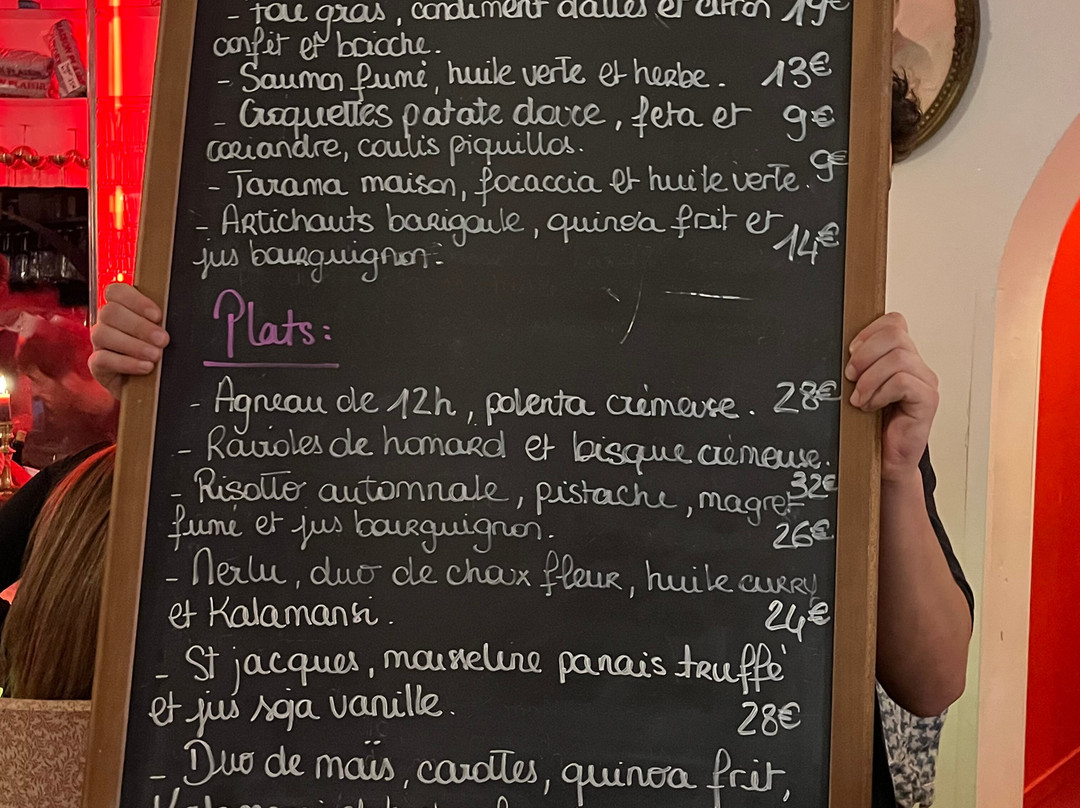 - foie gras, condiment dattes et citron 19€
confit et brioche.
- Saumon fumé, huile verte et herbe. 13€
- Croquettes patate douce, feta et 9€
coriandre, coulis piquillos.
- Tarama maison, focaccia et huile verte. 9€
- Artichauts barigoule, quinoa frit et 14€
jus bourguignon.
Plats:
- Agneau de 12h, polenta crémeuse. 28€
- Ravioles de homard et bisque crémeuse.
32€
- Risotto automnale, pistache, magret
fumé et jus bourguignon. 26€
- Merlu, duo de choux fleur, huile curry
et Kalamansi. 24€
- St jacques, mousseline panais truffé
et jus soja vanille. 28€
- Duo de maïs, carottes, quinoa frit,